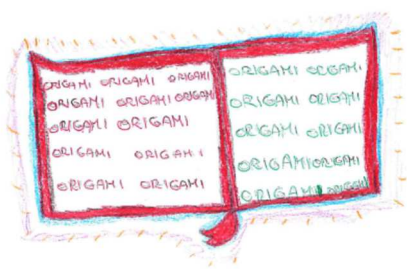 ORIGAMI ORIGAMI ORIGAMI
ORIGAMI ORIGAMI ORIGAMI
ORIGAMI ORIGAMI
ORIGAMI ORIGAMI
ORIGAMI ORIGAMI
ORIGAMI ORIGAMI
ORIGAMI ORIGAMI
ORIGAMI ORIGAMI
ORIGAMI ORIGAMI
ORIGAMI ORIGAMI